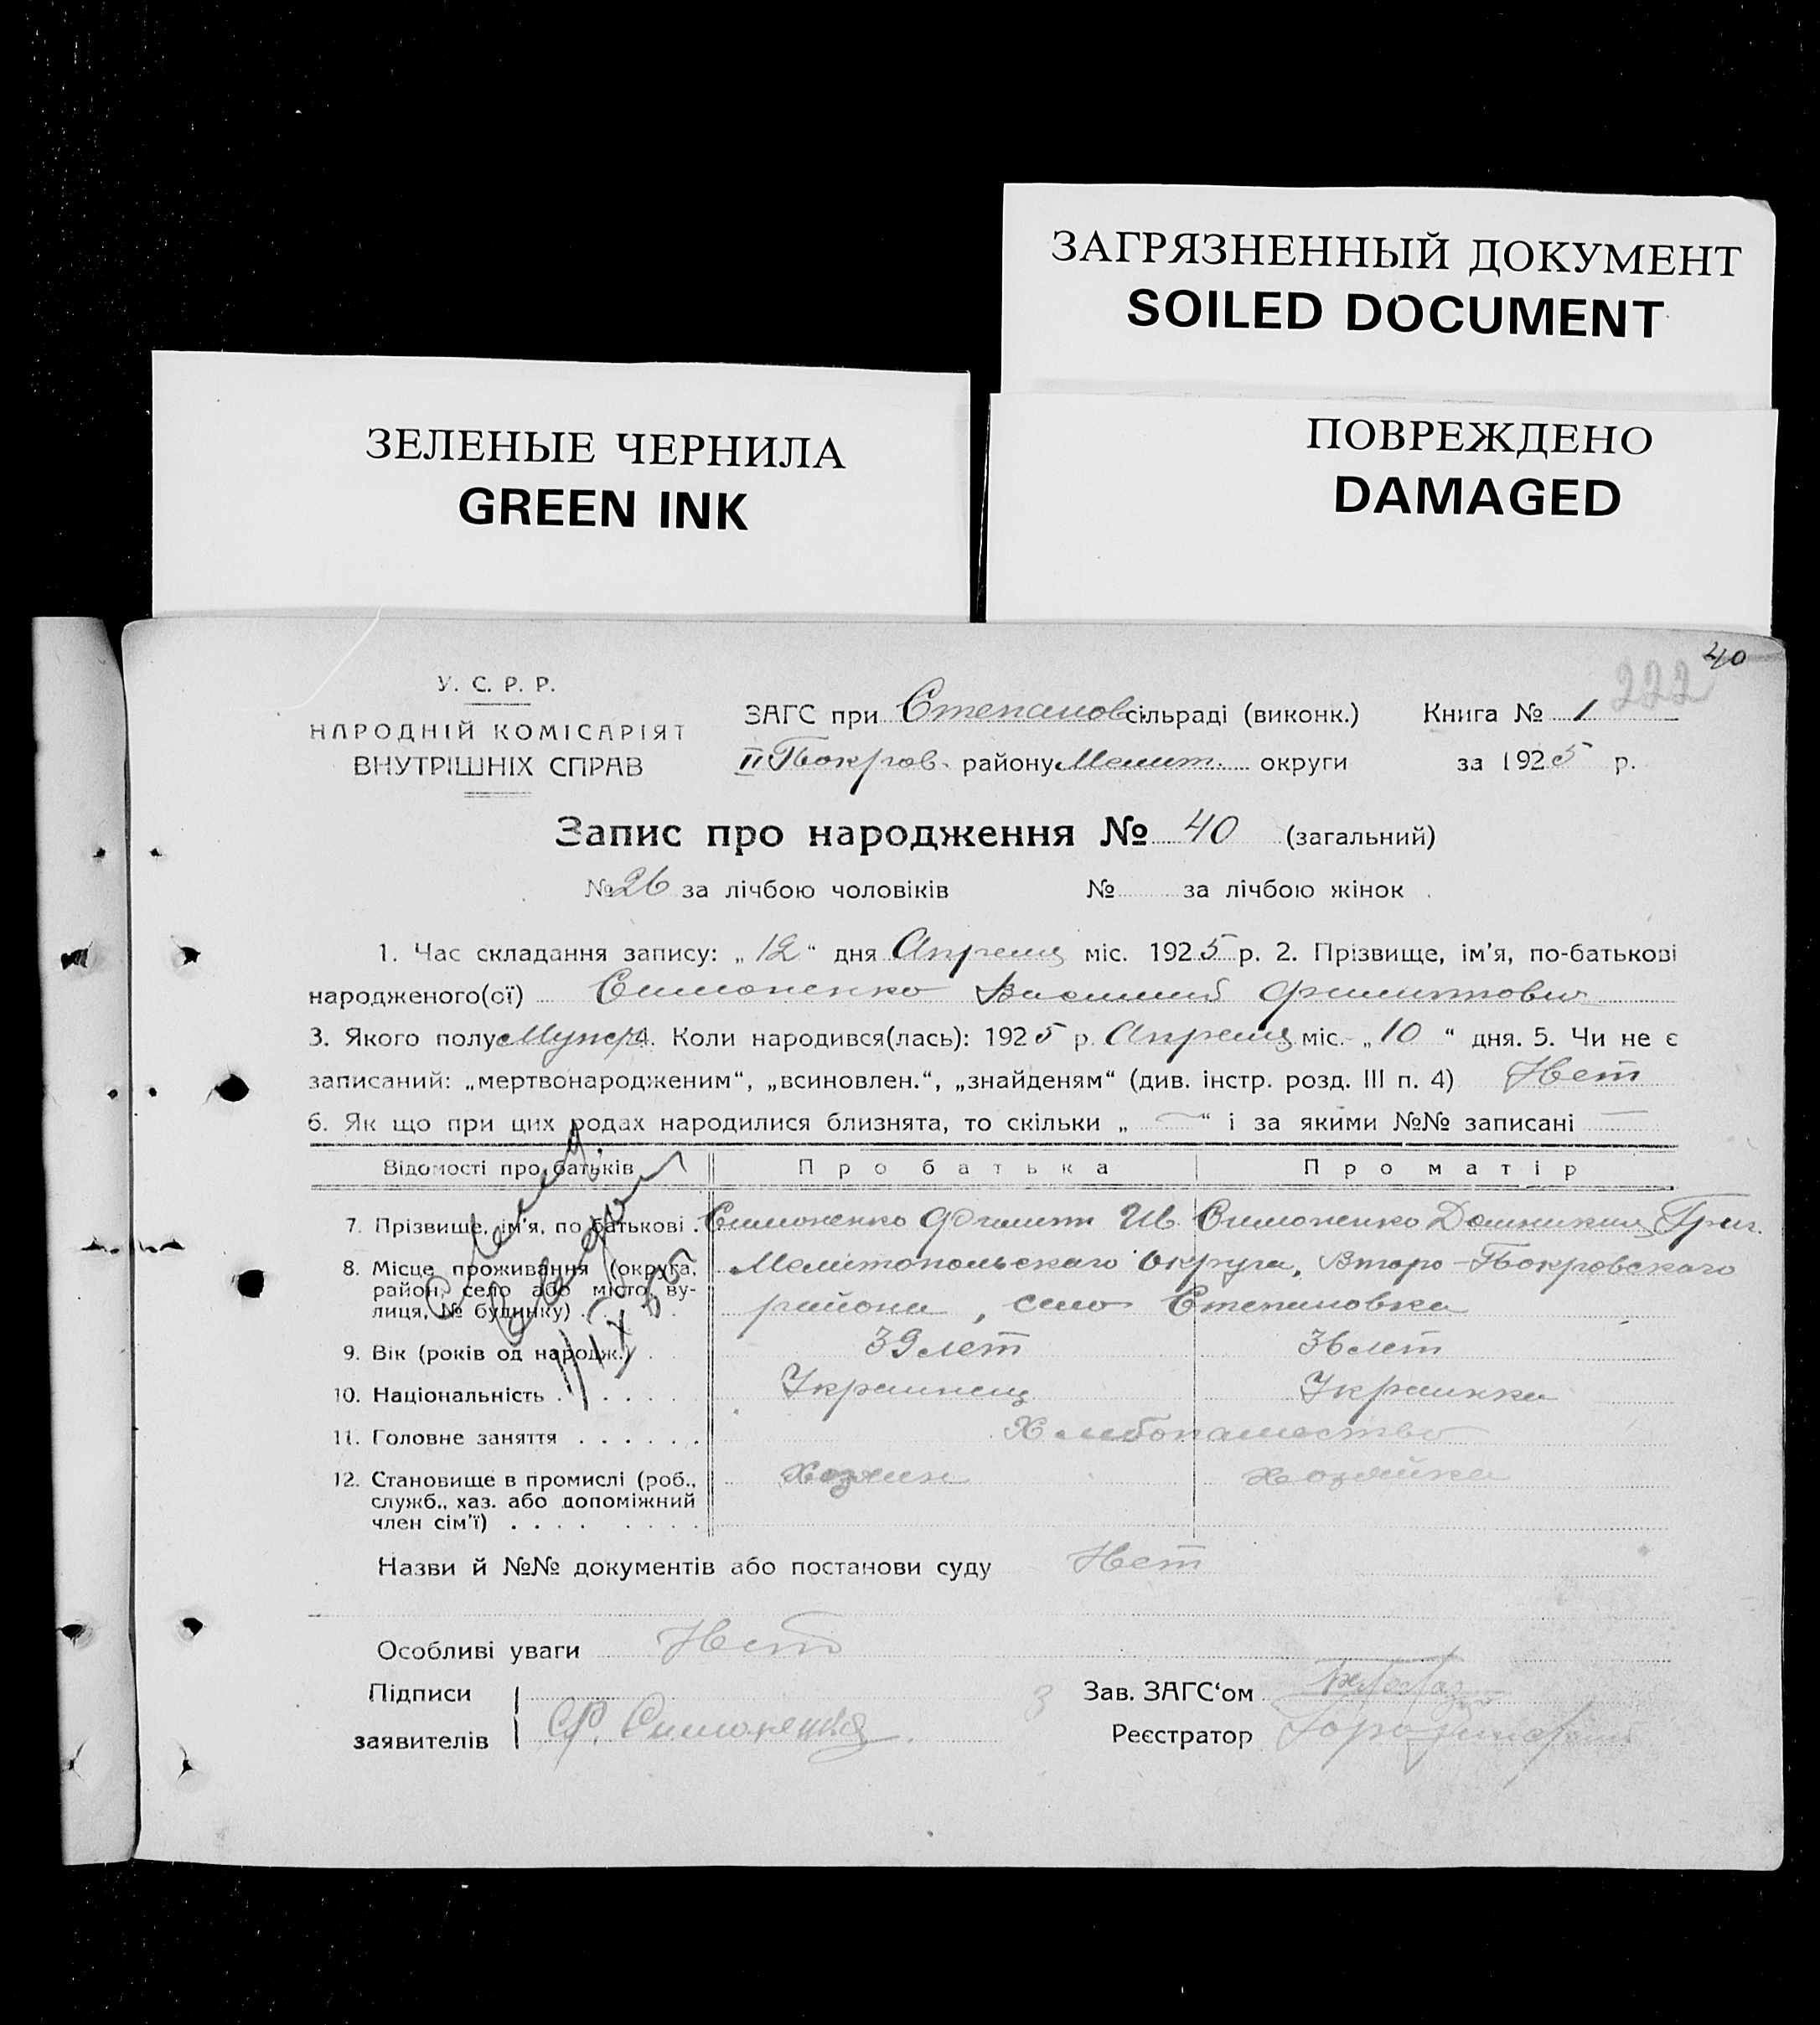 ЗАГРЯЗНЕННЫЙ ДОКУМЕНТ
SOILED DOCUMENT
ЗЕЛЕНЫЕ ЧЕРНИЛА
GREEN INK
ПОВРЕЖДЕНО
DAMAGED
40
222
У. С. Р. Р.
НАРОДНІЙ КОМІСАРІЯТ
ВНУТРІШНІХ СПРАВ
ЗАГС при Степановсільраді (виконк.) Книга № 1
II Покров. району Мелит. округи за 1925 р.
Запис про народження № 40 (загальний)
№ 26 за лічбою чоловіків № за лічбою жінок
1. Час складання запису: „12“ дня Апреля міс. 1925 р. 2. Прізвище, ім’я, по-батькові
народженого(ої) Симоненко Василий Филиппович
3. Якого полу Мужск 4. Коли народився(лась): 1925 р. Апреля міс. „10“ дня. 5. Чи не є
записаний: „мертвонародженим“, „всиновлен.“, „знайденям“ (див. інстр. розд. III п. 4) Нет
6. Як що при цих родах народилися близнята, то скільки „—“ і за якими №№ записані —
Відомості про батьків Про батька Про матір
7. Прізвище, ім’я, по батькові . Симоненко Филипп Ив. Симоненко Домникия Григ.
8. Місце проживання (округа, район, село або місто, вулиця, № будинку) Мелитопольскаго Округа, Второ-Покровскаго
района, село Степановка
9. Вік (років од народж.) 39 лет 36 лет
10. Національність . . . . . Украинец Украинка
11. Головне заняття . . . . . . Хлебопашество
12. Становище в промислі (роб., Хозяин Хозяйка
служб., хаз. або допоміжний
член сім’ї) . . . . . . . .
Назви й №№ документів або постанови суду Нет
Особливі уваги Нет
Підписи
заявителів Ф. Симоненко
Зав. ЗАГС‘ом
Реєстратор